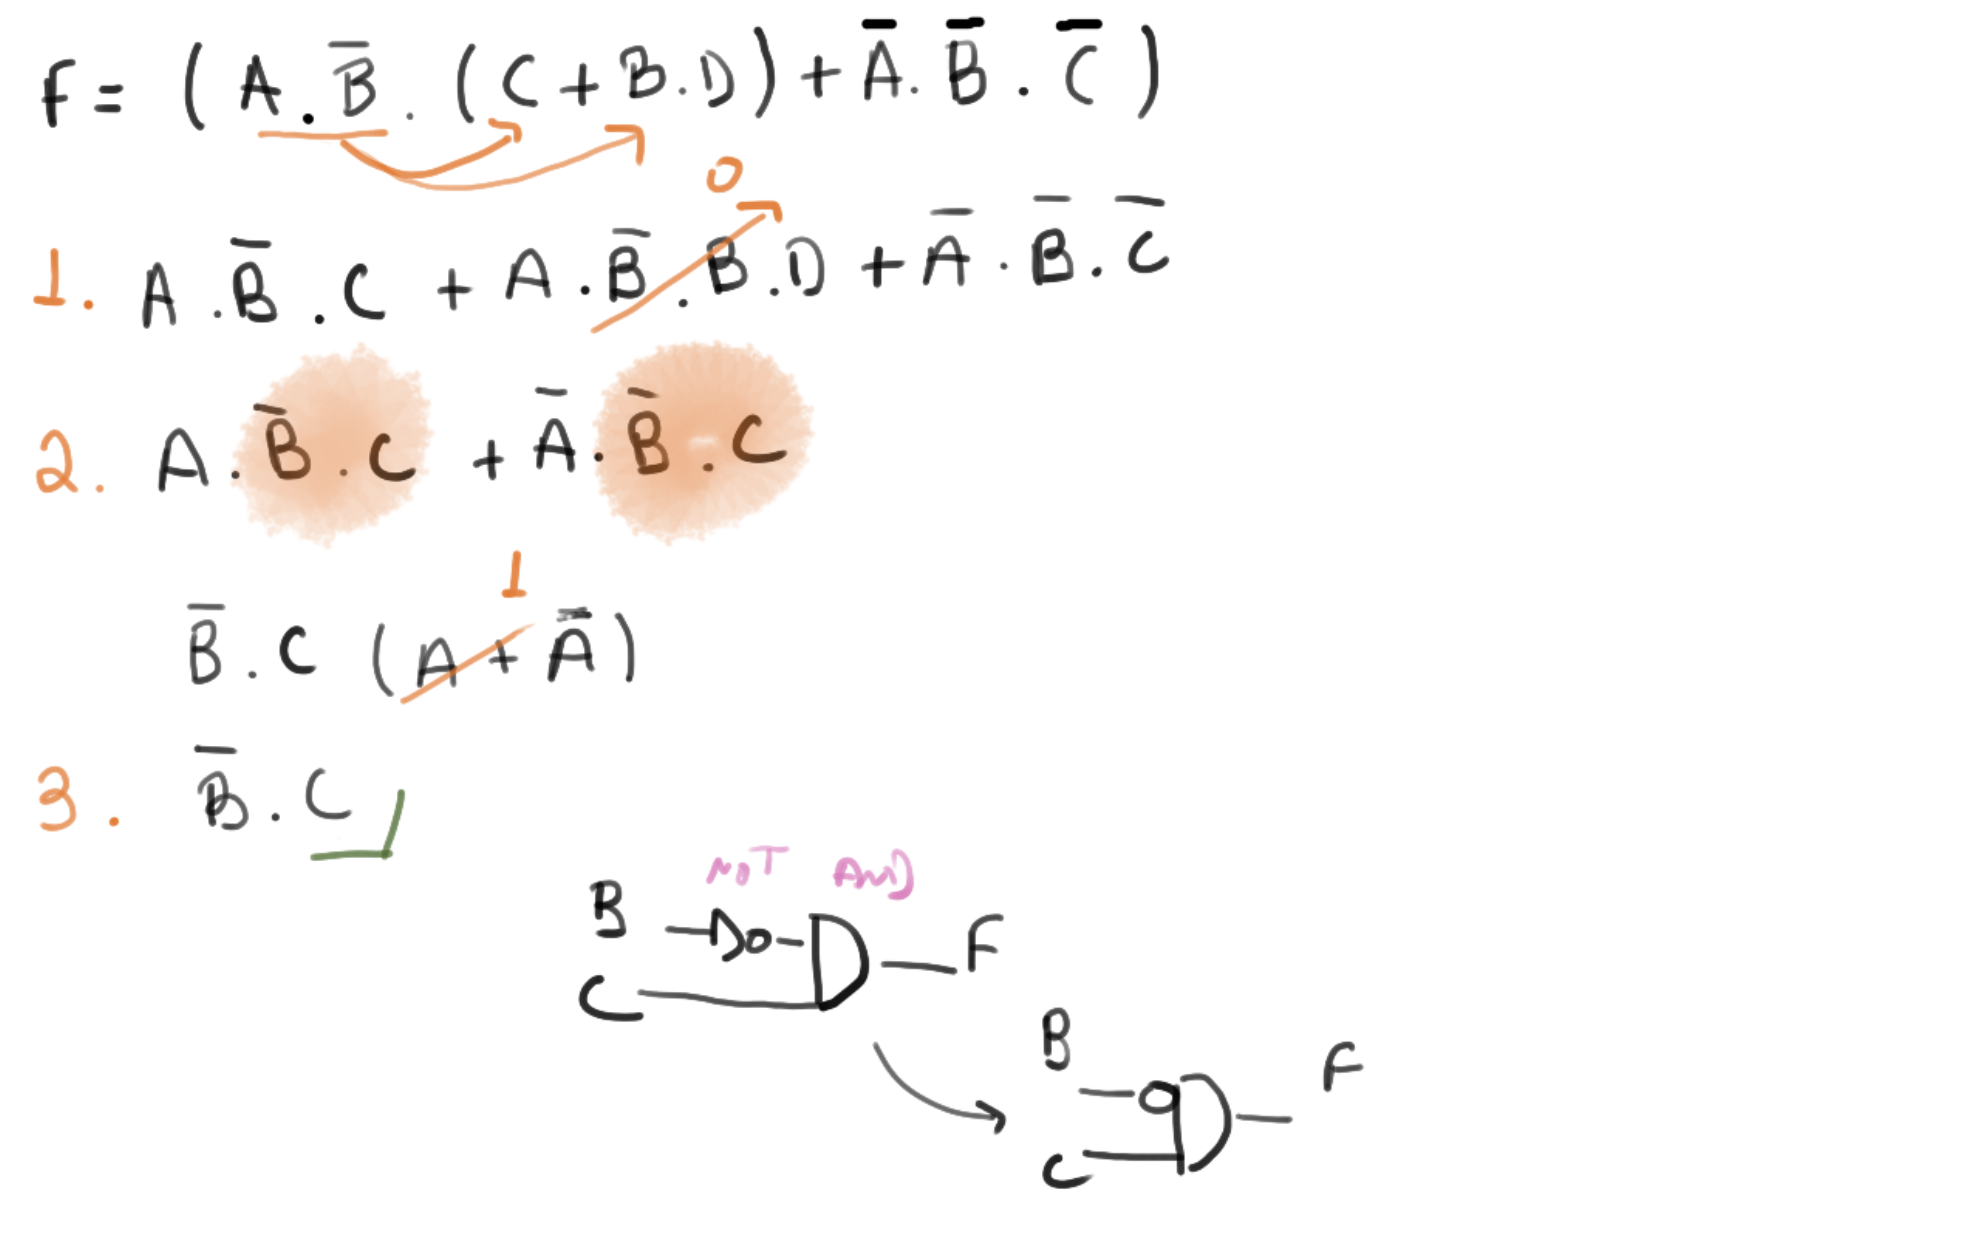 F = (A.B̅.(C+B.D)+A̅.B̅.C̅)
0
1. A.B̅.C + A.B̅.B.D + A̅.B̅.C̅
2. A.B̅.C + A̅.B̅.C
1
B̅.C (A+A̅)
3. B̅.C
NOT AND
B
F
C
B
F
C